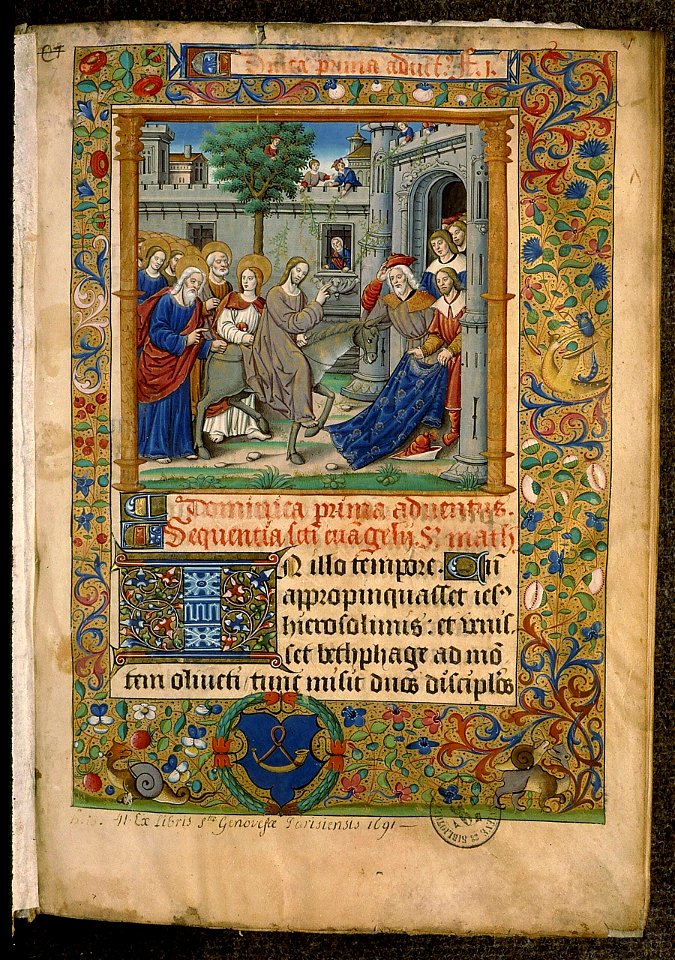 Dn̄ica prima aduēt. F. 1.
Dominica prima aduentus.
Sequentia scti euāgelii. S. math
IN illo tempore. Cū
appropinquasset iesꝰ
hierosolimis: et venis-
set bethphage ad mō
tem oliueti tunc misit duos discip̄los
41. Ex Libris Stæ Genovefæ Parisiensis 1691